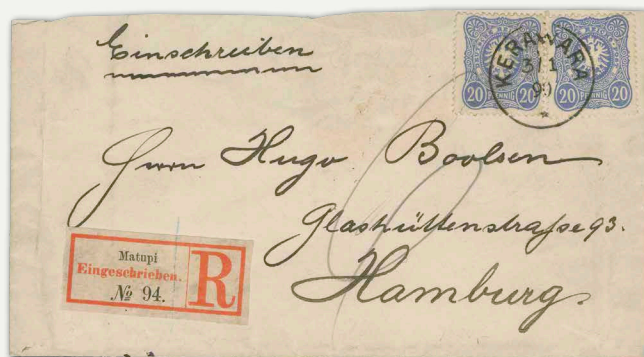 Einschreiben
20 PFENNIG 20
20 PFENNIG 20
KERAWARA
3/1
90
*
Herrn Hugo Boolsen
Glashüttenstraße 93.
Hamburg.
Matupi
Eingeschrieben.
№ 94.
R